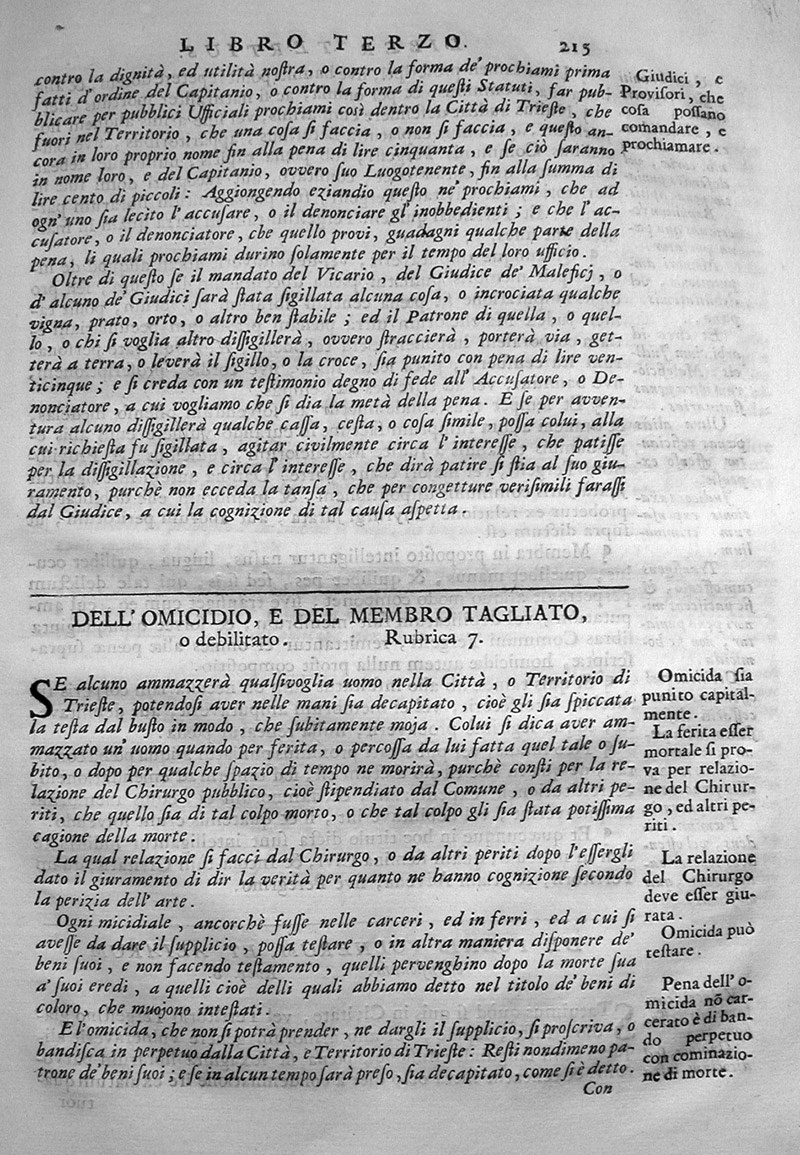 LIBRO TERZO. 215
contro la dignità, ed utilità noſtra, o contro la forma de' prochiami prima
fatti d'ordine del Capitanio, o contro la forma di queſti Statuti, far pub-
blicare per pubblici Ufficiali prochiami così dentro la Città di Trieſte, che
fuori nel Territorio, che una coſa ſi faccia, o non ſi faccia, e queſto an-
cora in loro proprio nome fin alla pena di lire cinquanta, e ſe ciò ſaranno
in nome loro, e del Capitanio, ovvero ſuo Luogotenente, fin alla ſumma di
lire cento di piccoli: Aggiongendo eziandio queſto ne' prochiami, che ad
ogn' uno ſia lecito l'accuſare, o il denonciare gl' inobbedienti; e che l'ac-
cuſatore, o il denonciatore, che quello provi, guadagni qualche parte della
pena, li quali prochiami durino ſolamente per il tempo del loro ufficio.
Giudici, e
Proviſori, che
coſa poſſano
comandare, e
prochiamare.
Oltre di queſto ſe il mandato del Vicario, del Giudice de' Maleficj, o
d' alcuno de' Giudici ſarà ſtata ſigillata alcuna coſa, o incrociata qualche
vigna, prato, orto, o altro ben ſtabile; ed il Patrone di quella, o quel-
lo, o chi ſi voglia altro diſſigillerà, ovvero ſtraccierà, porterà via, get-
terà a terra, o leverà il ſigillo, o la croce, ſia punito con pena di lire ven-
ticinque; e ſi creda con un teſtimonio degno di fede all' Accuſatore, o De-
nonciatore, a cui vogliamo che ſi dia la metà della pena. E ſe per avven-
tura alcuno diſſigillerà qualche caſſa, ceſta, o coſa ſimile, poſſa colui, alla
cui richieſta fu ſigillata, agitar civilmente circa l' intereſſe, che patiſſe
per la diſſigillazione, e circa l' intereſſe, che dirà patire ſi ſtia al ſuo giu-
ramento, purchè non ecceda la tanſa, che per congetture veriſimili faraſſi
dal Giudice, a cui la cognizione di tal cauſa aſpetta.
DELL' OMICIDIO, E DEL MEMBRO TAGLIATO,
o debilitato. Rubrica 7.
SE alcuno ammazzerà qualſivoglia uomo nella Città, o Territorio di
Trieſte, potendoſi aver nelle mani ſia decapitato, cioè gli ſia ſpiccata
la teſta dal buſto in modo, che ſubitamente moja. Colui ſi dica aver am-
mazzato un' uomo quando per ferita, o percoſſa da lui fatta quel tale o ſu-
bito, o dopo per qualche ſpazio di tempo ne morirà, purchè conſti per la re-
lazione del Chirurgo pubblico, cioè ſtipendiato dal Comune, o da altri pe-
riti, che quello ſia di tal colpo morto, o che tal colpo gli ſia ſtata potiſſima
cagione della morte.
Omicida ſia
punito capital-
mente.
La ferita eſſer
mortale ſi pro-
va per relazio-
ne del Chirur-
go, ed altri pe-
riti.
La qual relazione ſi facci dal Chirurgo, o da altri periti dopo l'eſſergli
dato il giuramento di dir la verità per quanto ne hanno cognizione ſecondo
la perizia dell' arte.
La relazione
del Chirurgo
deve eſſer giu-
rata.
Ogni micidiale, ancorchè fuſſe nelle carceri, ed in ferri, ed a cui ſi
aveſſe da dare il ſupplicio, poſſa teſtare, o in altra maniera diſponere de'
beni ſuoi, e non facendo teſtamento, quelli pervenghino dopo la morte ſua
a' ſuoi eredi, a quelli cioè delli quali abbiamo detto nel titolo de' beni di
coloro, che muojono inteſtati.
Omicida può
teſtare.
E l'omicida, che non ſi potrà prender, ne dargli il ſupplicio, ſi proſcriva, o
bandiſca in perpetuo dalla Città, e Territorio di Trieſte: Reſti nondimeno pa-
trone de' beni ſuoi; e ſe in alcun tempo ſarà preſo, ſia decapitato, come ſi è detto.
Con
Pena dell' o-
micida nõ car-
cerato è di ban-
do perpetuo
con cominazio-
ne di morte.